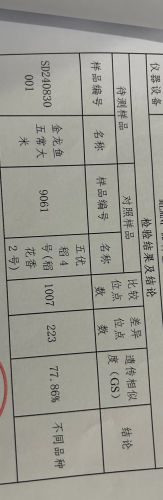 仪器设备
检验结果及结论
待测样品
对照样品
比较
位点
数
差异
位点
数
遗传相似
度（GS）
结论
样品编号
名称
样品编号
名称
SD240830
001
金龙鱼
五常大
米
9061
五优
稻4
号(稻
花香
2号)
1007
223
77.86%
不同品种